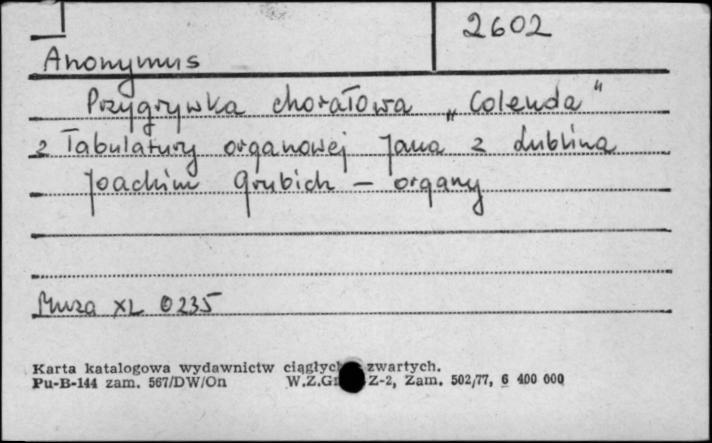 2602
Anonymus
Przygrywka chorałowa „Colenda"
z Tabulatury organowej Jana z Lublina
Joachim Grubich — organy
Muza XL 0235
Karta katalogowa wydawnictw ciągłych zwartych.
Pu-B-144 zam. 567/DW/On W.Z.Gr Z-2, Zam. 502/77, 6 400 000